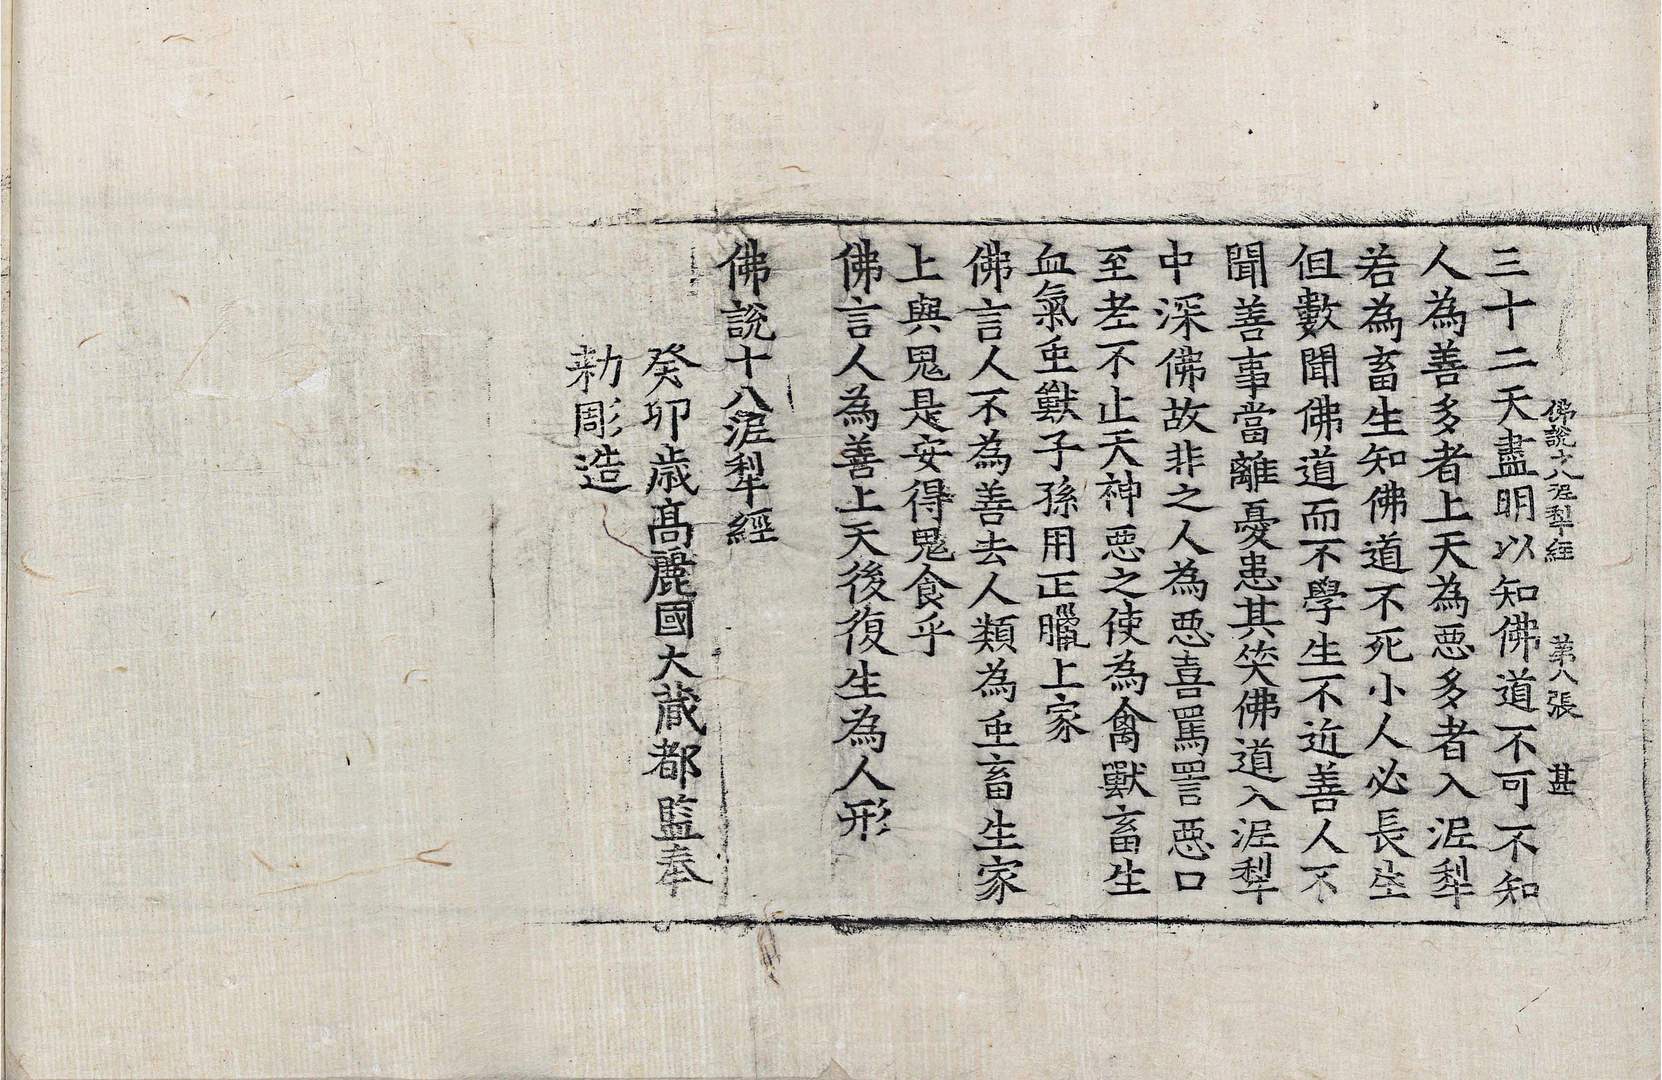 佛說十八泥犁經　第八張　甚
三十二天盡明以知佛道不可不知
人為善多者上天為惡多者入泥犁
若為畜生知佛道不死小人必長生
但數聞佛道而不學生不近善人不
聞善事當離憂患其笑佛道入泥犁
中深佛故非之人為惡喜罵詈惡口
至老不止天神惡之使為禽獸畜生
血氣虫獸子孫用正臘上家
佛言人不為善去人類為虫畜生家
上與鬼是安得鬼食乎
佛言人為善上天後復生為人形
佛說十八泥犁經
癸卯歲高麗國大藏都監奉
勅彫造